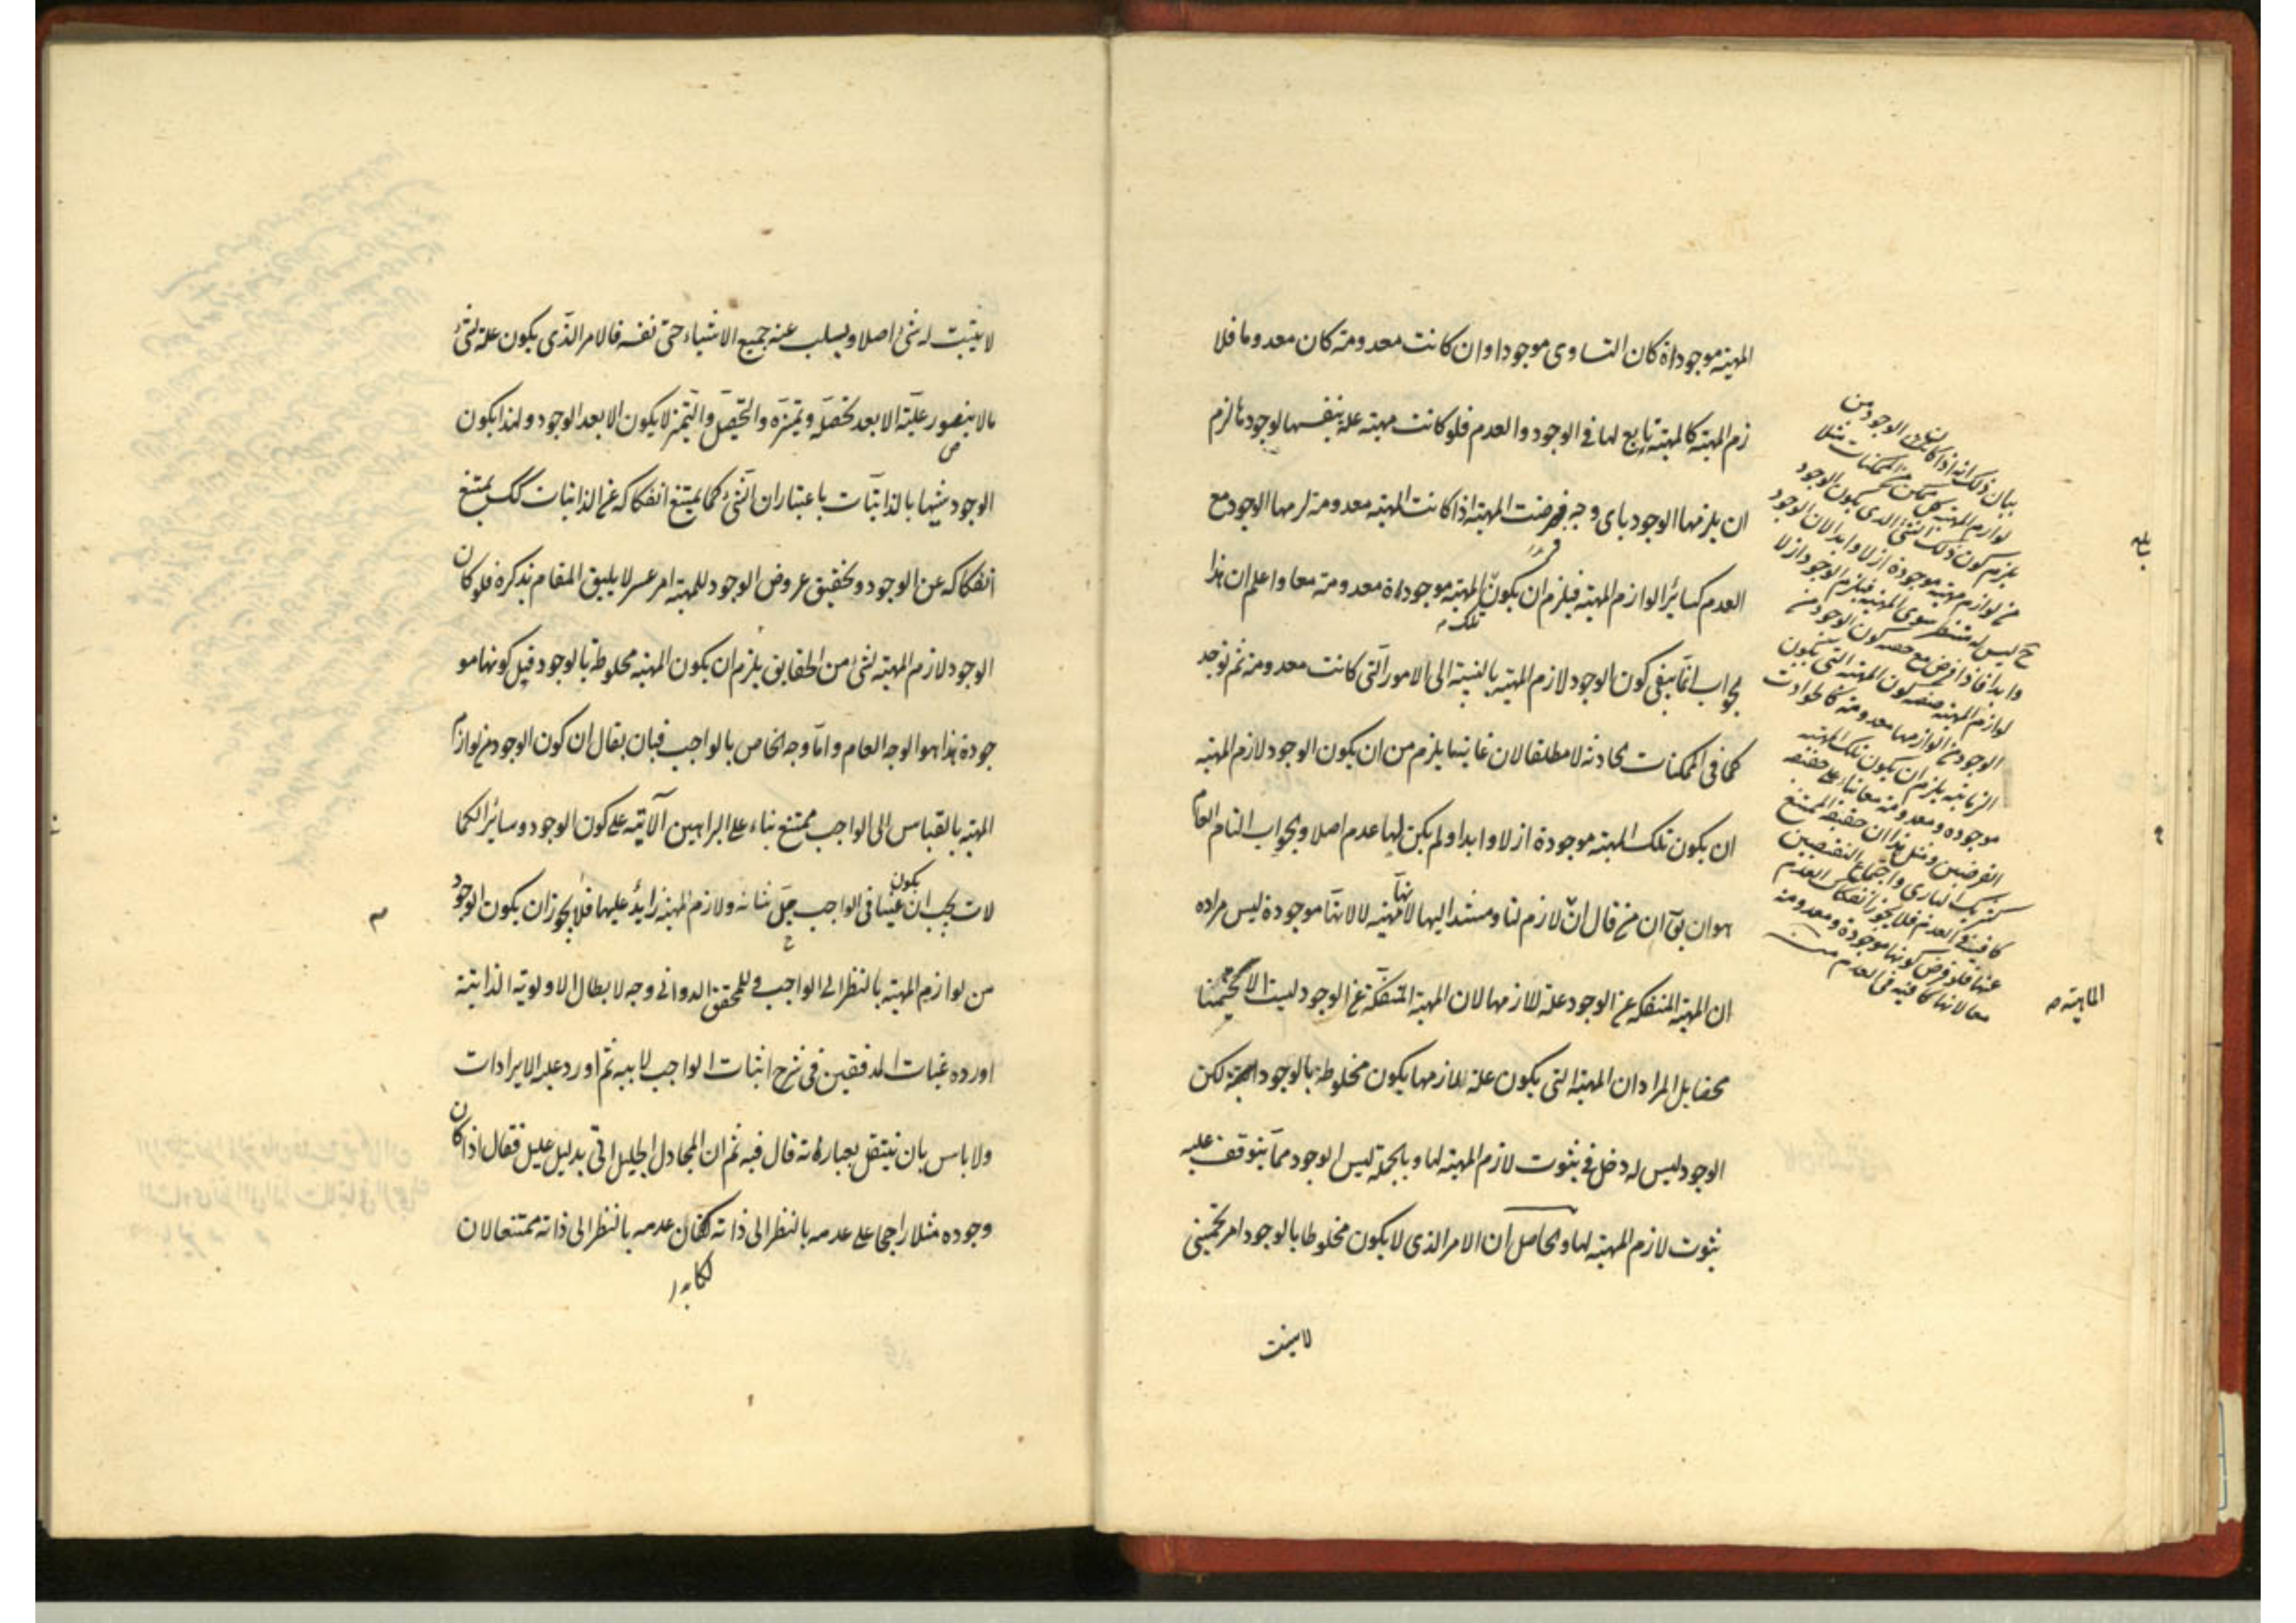 المهية موجوداة كان التساوى موجودا وان كانت معدومة كان معدوما فلا
زم المهية كالمهية تابع لها فى الوجود والعدم فلو كانت مهية علة بنفسها لوجودها لزم
ان يلزمها الوجود باى وجه فرضت المهية اذا كانت المهية معدومة لزمها الوجود مع
العدم كسائر لوازم المهية فيلزم ان يكون المهية موجوداة معدومة معا واعلم ان هذا
تلك
الجواب انما ينفى كون الوجود لازم المهية بالنسبة الى الامور التى كانت معدومة ثم توجد
كما فى الممكنات الحادثة لا مطلقا لان غايتها يلزم من ان يكون الوجود لازم المهية
ان يكون تلك المهية موجودة ازلا وابدا ولم يكن لها عدم اصلا والجواب التام العام
هو ان يق ان من قال ان لازم لنا ومستندا اليها لانها مهية لا لانها موجودة ليس مراده
ان المهية المنفكة عن الوجود علة للازمها لان المهية المنفكة عن الوجود ليست الا تخمينا
محضا بل المراد ان المهية التى يكون علة للازمها يكون مخلوطة بالوجود البتة لكن
الوجود ليس له دخل فى ثبوت لازم المهية لها وبالجملة ليس الوجود مما يتوقف عليه
ثبوت لازم المهية لها والحاصل ان الامر الذى لا يكون مخلوطا بالوجود امر تخمينى
لا يثبت
بيان ذلك انه اذا كان الوجود من
لوازم المهية كل ممكن من الممكنات مثلا
يلزم كون ذلك الشئ الذى يكون الوجود
من لوازم مهية موجودة ازلا وابدا لان الوجود
ح ليس له منتظر سوى المهية فيلزم الوجود ازلا
وابدا فاذا فرض مع حصه كون الوجود من
لوازم المهية كون المهية التى يكون
الوجود من لوازمها معدومة كالحوادث
الزمانية يلزم ان يكون تلك المهية
موجوده ومعدومة معا بناء على حقيقة
الفرضين ومثل هذا ان حقيقة الممتنع
كشريك البارى واجتماع النقيضين
كافية فى العدم فلا يجوز انفكاك العدم
عنها فلو فرض كونها موجودة ومعدومة
معا لانها كافية فى العدم منه
الماهية م
لا يثبت له شئ اصلا ويسلب عنه جميع الاشياء حتى نفسه فالامر الذى يكون علة لشئ
ما لا يتصور عليته الا بعد تحصله وتميزه والتحصل والتميز لا يكون الا بعد الوجود ولهذا يكون
الوجود شبيها بالذاتيات باعتبار ان الشئ كما يمتنع انفكاكه عن الذاتيات كك يمتنع
انفكاكه عن الوجود وتحقيق عروض الوجود للمهية امر عسر لا يليق المقام بذكره فلو كان
الوجود لازم المهية لشئ من الحقايق يلزم ان يكون المهية مخلوطة بالوجود قبل كونها مو
جودة هذا هو الوجه العام واما وجه الخاص بالواجب فبان يقال ان كون الوجود من لوازم
المهية بالقياس الى الواجب ممتنع بناء على البراهين الآتية على كون الوجود وسائر الكما
لات يجب ان يكون عينا فى الواجب جل شانه ولازم المهية زايد عليها فلا يجوز ان يكون الوجود
من لوازم المهية بالنظر الى الواجب وللمحقق الدوانى وجه لابطال الاولوية الذاتية
اورده غياث المدققين فى شرح اثبات الواجب لابيه ثم اورد عليه الايرادات
ولا باس بان ينتقل بعباراته قال فيه ثم ان المجادل الجليل اتى بدليل عليل فقال اذا كان
وجوده مثلا راجحا على عدمه بالنظر الى ذاته لكان عدمه بالنظر الى ذاته ممتنعا لان